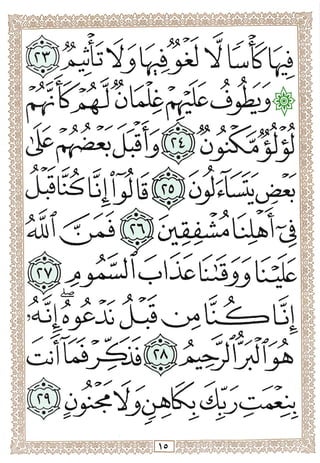 فِيهَا كَأْسًا لَّا لَغْوٌ فِيهَا وَلَا تَأْثِيمٌ ٢٣
۞ وَيَطُوفُ عَلَيْهِمْ غِلْمَانٌ لَّهُمْ كَأَنَّهُمْ
لُؤْلُؤٌ مَّكْنُونٌ ٢٤ وَأَقْبَلَ بَعْضُهُمْ عَلَىٰ
بَعْضٍ يَتَسَآءَلُونَ ٢٥ قَالُوٓا۟ إِنَّا كُنَّا قَبْلُ
فِىٓ أَهْلِنَا مُشْفِقِينَ ٢٦ فَمَنَّ ٱللَّهُ
عَلَيْنَا وَوَقَىٰنَا عَذَابَ ٱلسَّمُومِ ٢٧
إِنَّا كُنَّا مِن قَبْلُ نَدْعُوهُ ۖ إِنَّهُۥ
هُوَ ٱلْبَرُّ ٱلرَّحِيمُ ٢٨ فَذَكِّرْ فَمَآ أَنتَ
بِنِعْمَتِ رَبِّكَ بِكَاهِنٍ وَلَا مَجْنُونٍ ٢٩
١٥